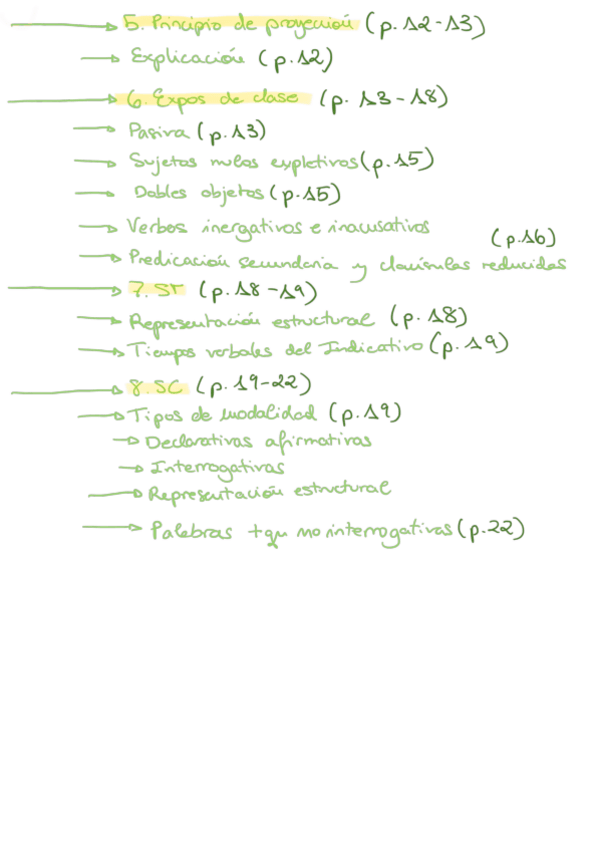 5. Principio de proyección (p. 12-13)
Explicación (p.12)
6. Expos de clase (p. 13-18)
Pasiva (p.13)
Sujetos nulos expletivos (p.15)
Dobles objetos (p.15)
Verbos inergativos e inacusativos
(p.16)
Predicación secundaria y claúsulas reducidas
7. ST (p. 18-19)
Representación estructural (p. 18)
Tiempos verbales del Indicativo (p.19)
8. SC (p. 19-22)
Tipos de modalidad (p.19)
Declarativas afirmativas
Interrogativas
Representación estructural
Palabras +qu no interrogativas (p.22)